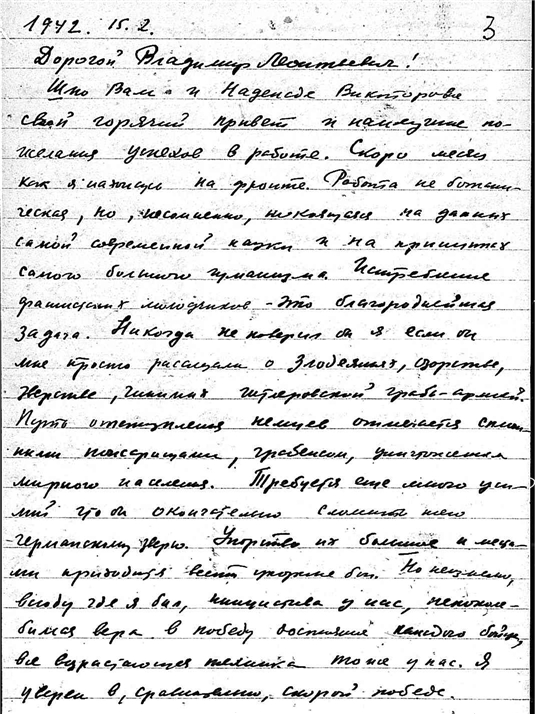 1942. 15.2. 3
Дорогой Владимир Леонтьевич!
Шлю Вам и Надежде Викторовне
свой горячий привет и наилучшие по-
желания успехов в работе. Скоро месяц
как я нахожусь на фронте. Работа не ботани-
ческая, но, несомненно, покоящаяся на данных
самой современной науки и на принципах
самого большого гуманизма. Истребление
фашистских молодчиков - это благороднейшая
задача. Никогда не поверил бы я если бы
мне просто рассказали о злодеяниях,
зверстве, чинимых гитлеровской грабь-армией.
Путь отступления немцев отмечается сплош-
ными пожарищами, грабежом, уничтожением
мирного населения. Требуется еще много уси-
лий что бы окончательно сломить шею
германскому зверю. Упорство их большое и места-
ми приходится вести упорные бои. Но неизменно,
всюду где я был, инициатива у нас, непоколе-
бимая вера в победу каждого бойца,
все возрастающая техника тоже у нас. Я
уверен в, сравнительно, скорой победе.